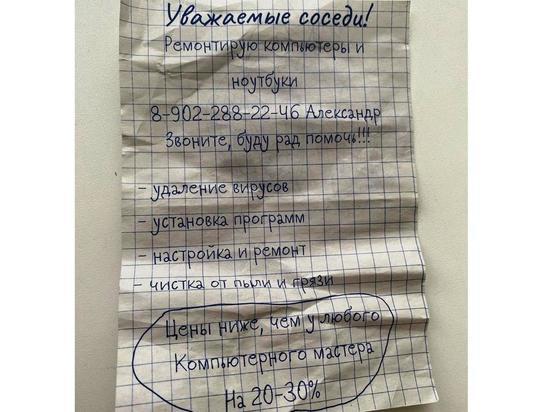 Уважаемые соседи!
Ремонтирую компьютеры и
ноутбуки
8-902-288-22-46 Александр
Звоните, буду рад помочь!!!
- удаление вирусов
- установка программ
- настройка и ремонт
- чистка от пыли и грязи
Цены ниже, чем у любого
Компьютерного мастера
На 20-30%